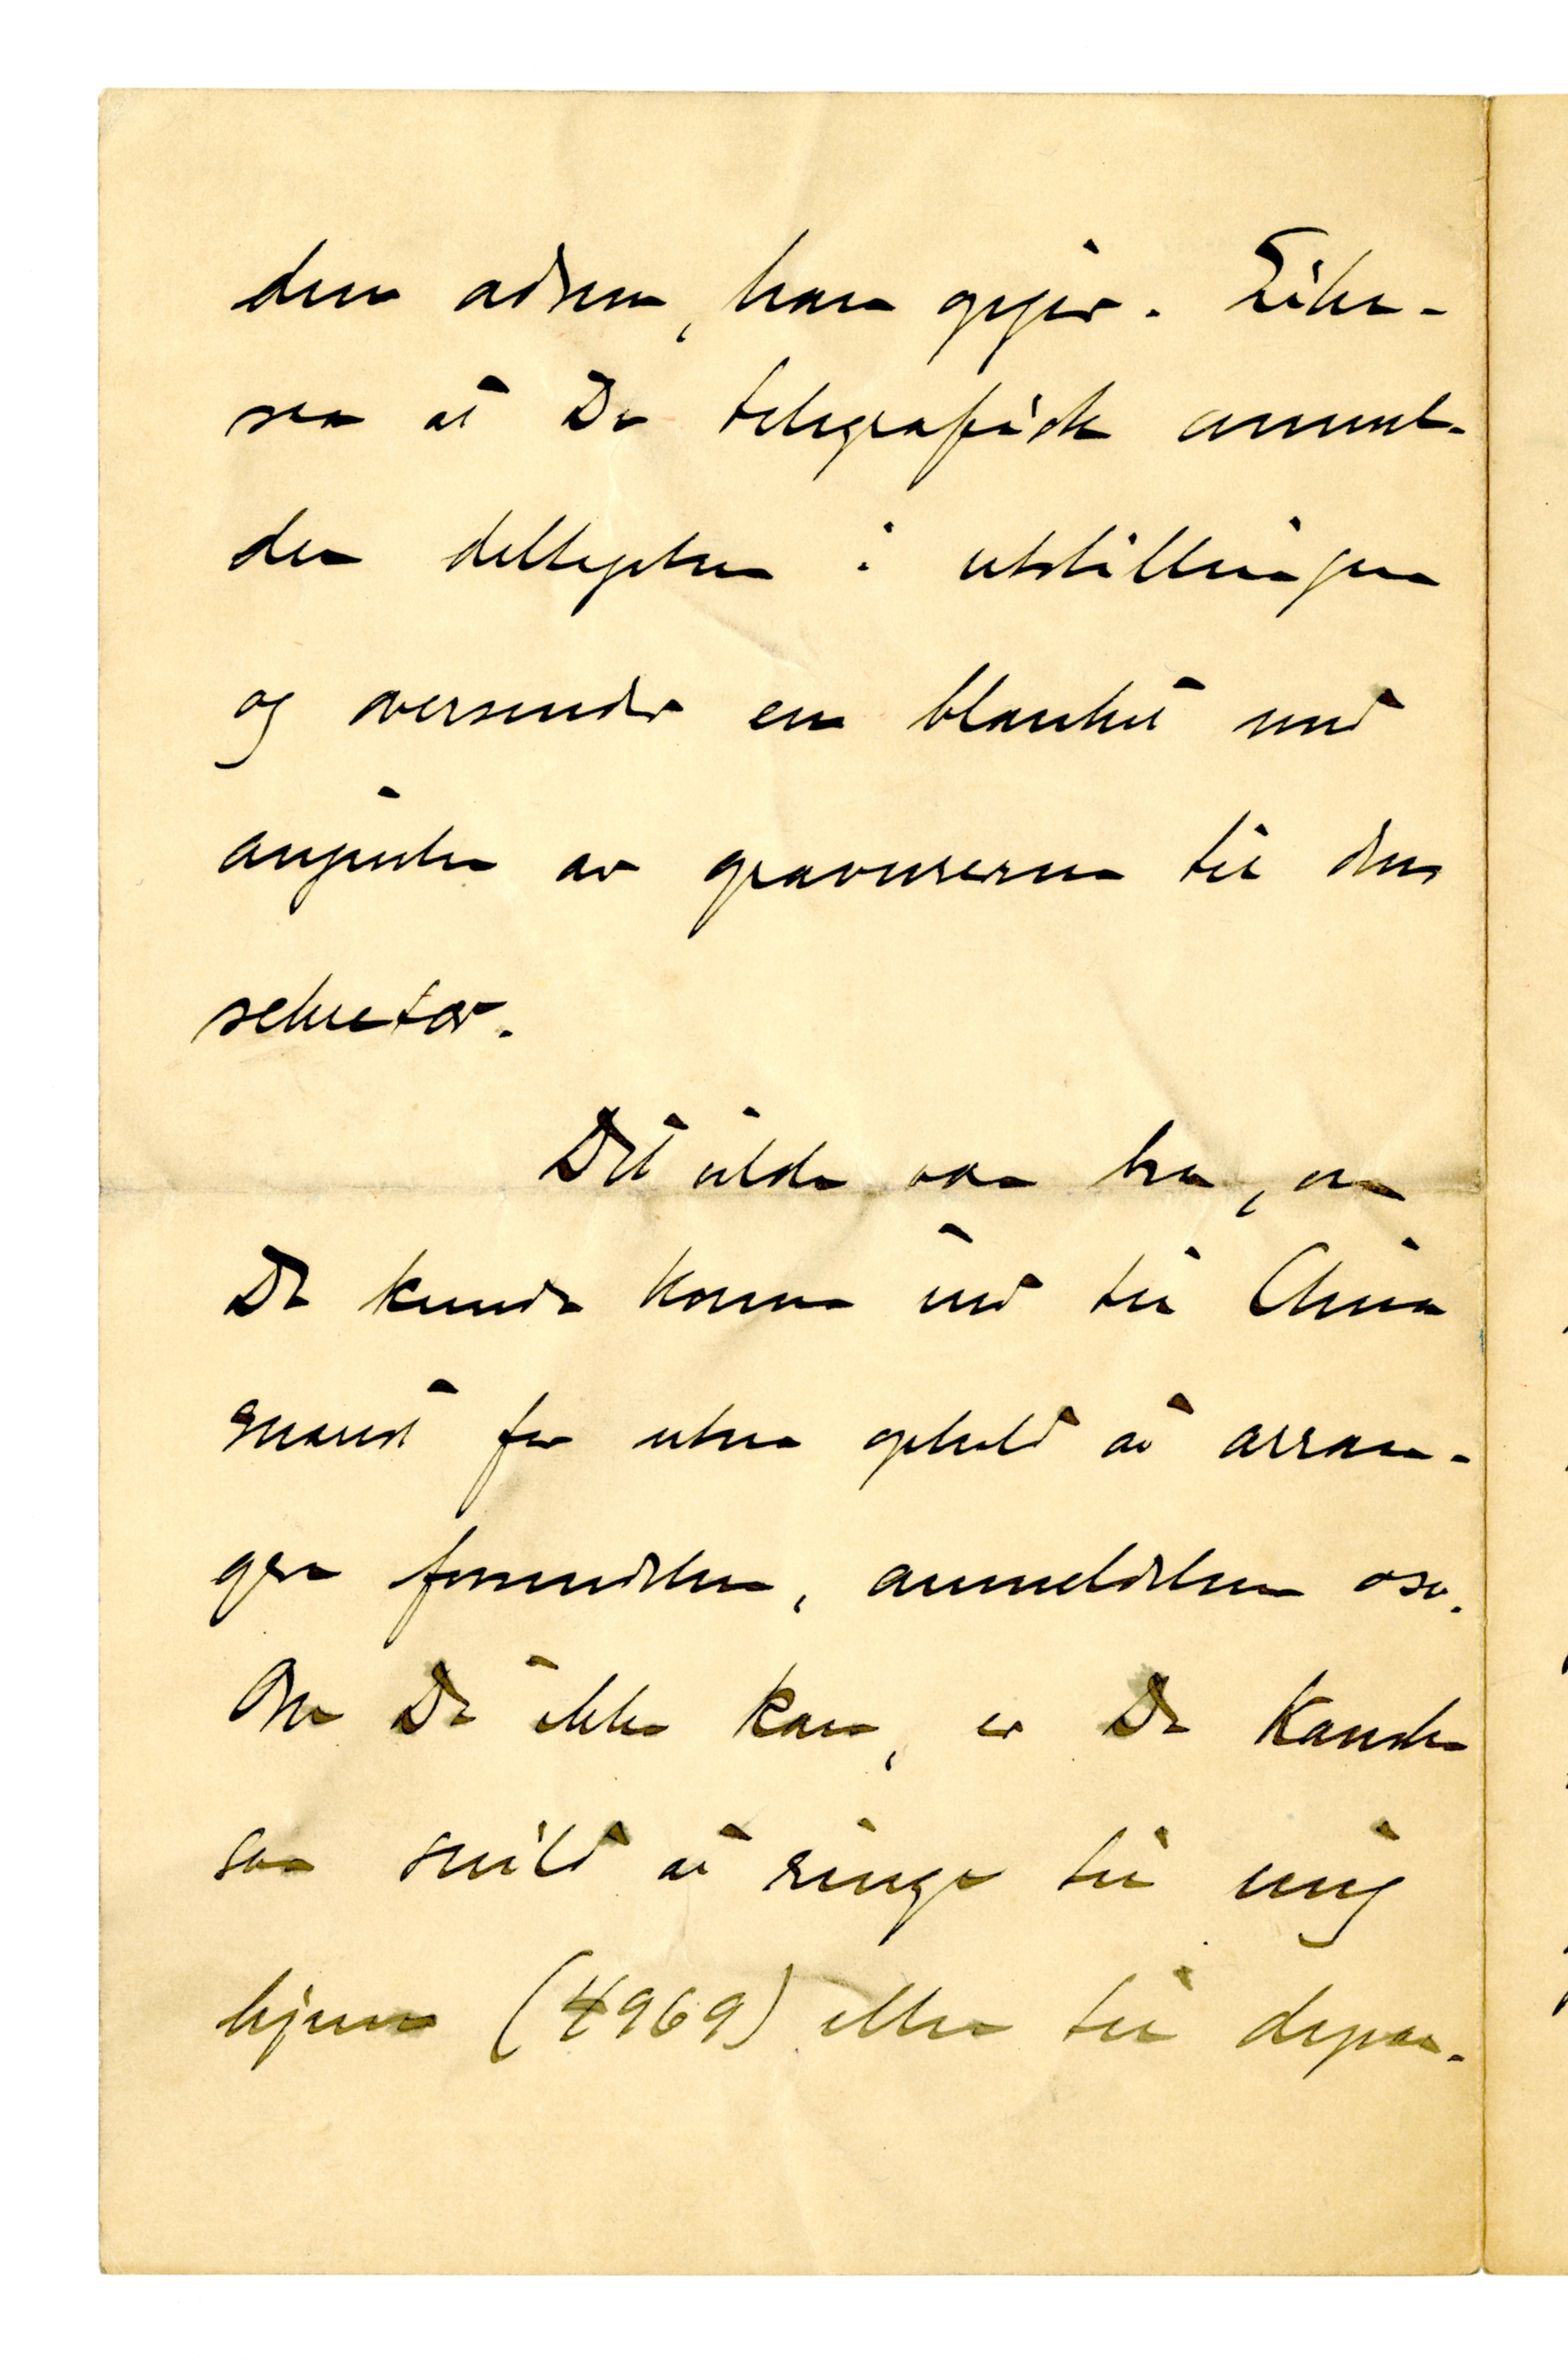 den adresse, han opgir. Like-
saa at De telegrafisk anmel-
der deltagelsen i utstillingen
og oversender en blanket med
angivelse av gravurerne til den
sekretær.
Det vilde være bra, om
De kunde komme ind til Christia
snarest for uten ophold at arran-
gere forsendelsen, anmeldelsen osv.
Om De ikke kan, er De kanske
saa snild at ringe til mig
hjemme (4969) eller til depar-